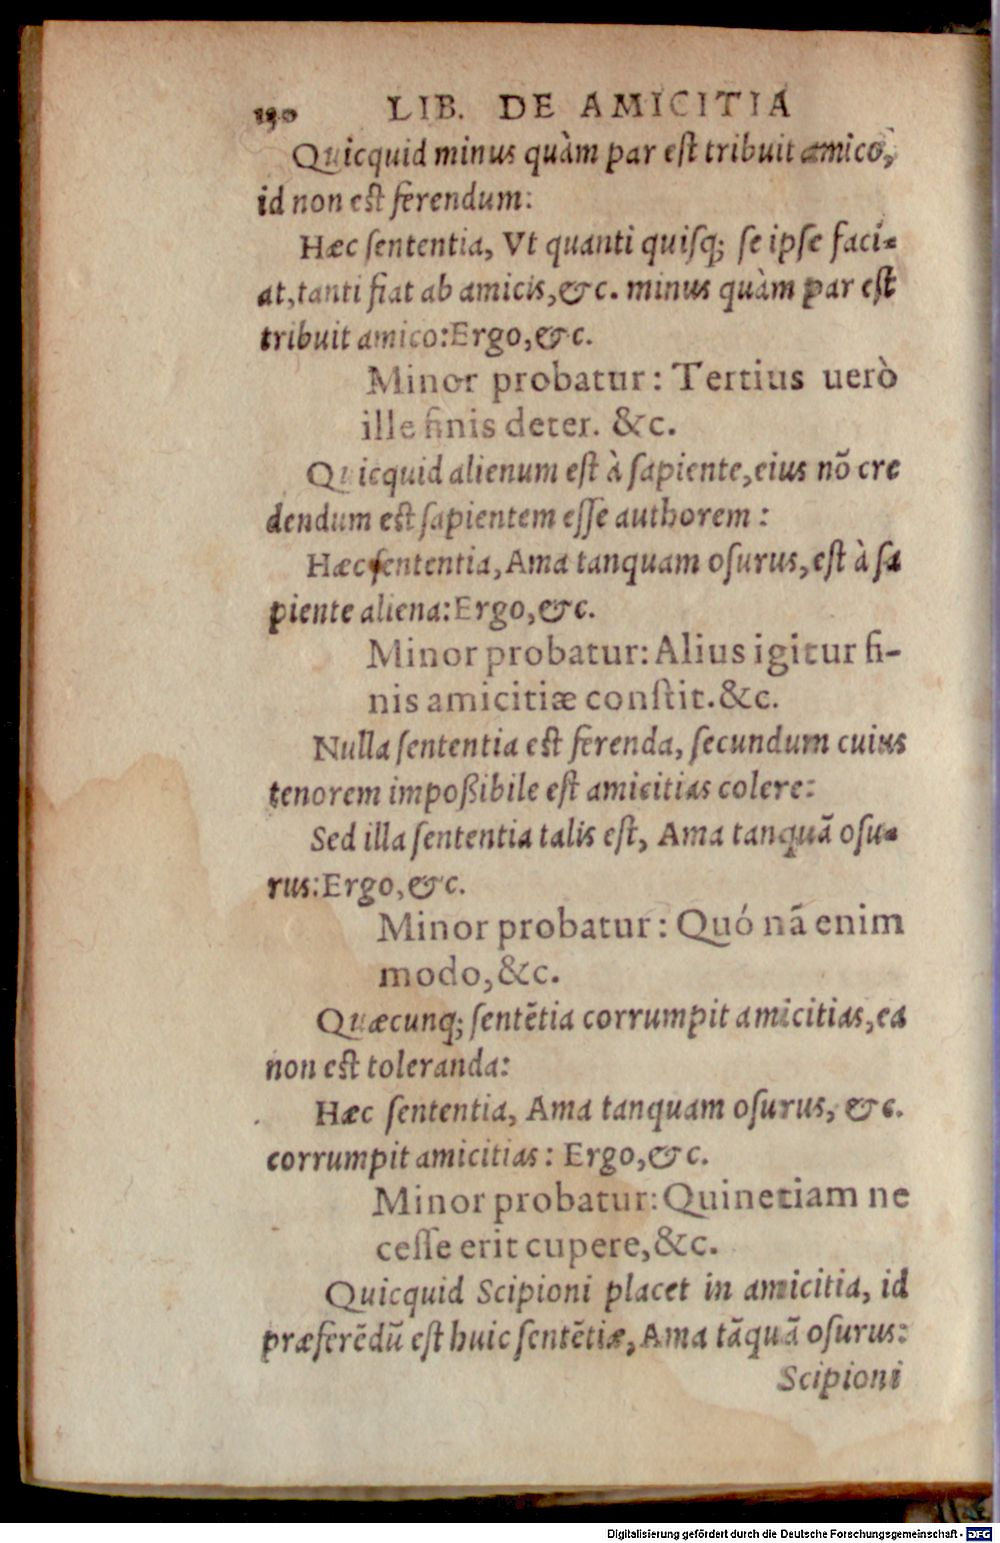 190 LIB. DE AMICITIA
Quicquid minus quàm par est tribuit amico,
id non est ferendum:
Hæc sententia, Vt quanti quisq; se ipse faci-
at, tanti fiat ab amicis, &c. minus quàm par est
tribuit amico: Ergo, &c.
Minor probatur: Tertius uerò
ille finis deter. &c.
Quicquid alienum est à sapiente, eius nõ cre
dendum est sapientem esse authorem:
Hæc sententia, Ama tanquam osurus, est à sa
piente aliena: Ergo, &c.
Minor probatur: Alius igitur fi-
nis amicitiæ constit. &c.
Nulla sententia est ferenda, secundum cuius
tenorem impoßibile est amicitias colere:
Sed illa sententia talis est, Ama tanquã osu-
rus: Ergo, &c.
Minor probatur: Quó nã enim
modo, &c.
Quæcunq; sentẽtia corrumpit amicitias, ea
non est toleranda:
Hæc sententia, Ama tanquam osurus, &c.
corrumpit amicitias: Ergo, &c.
Minor probatur: Quinetiam ne
cesse erit cupere, &c.
Quicquid Scipioni placet in amicitia, id
præferẽdũ est huic sentẽtiæ, Ama tãquã osurus:
Scipioni
Digitalisierung gefördert durch die Deutsche Forschungsgemeinschaft - DFG